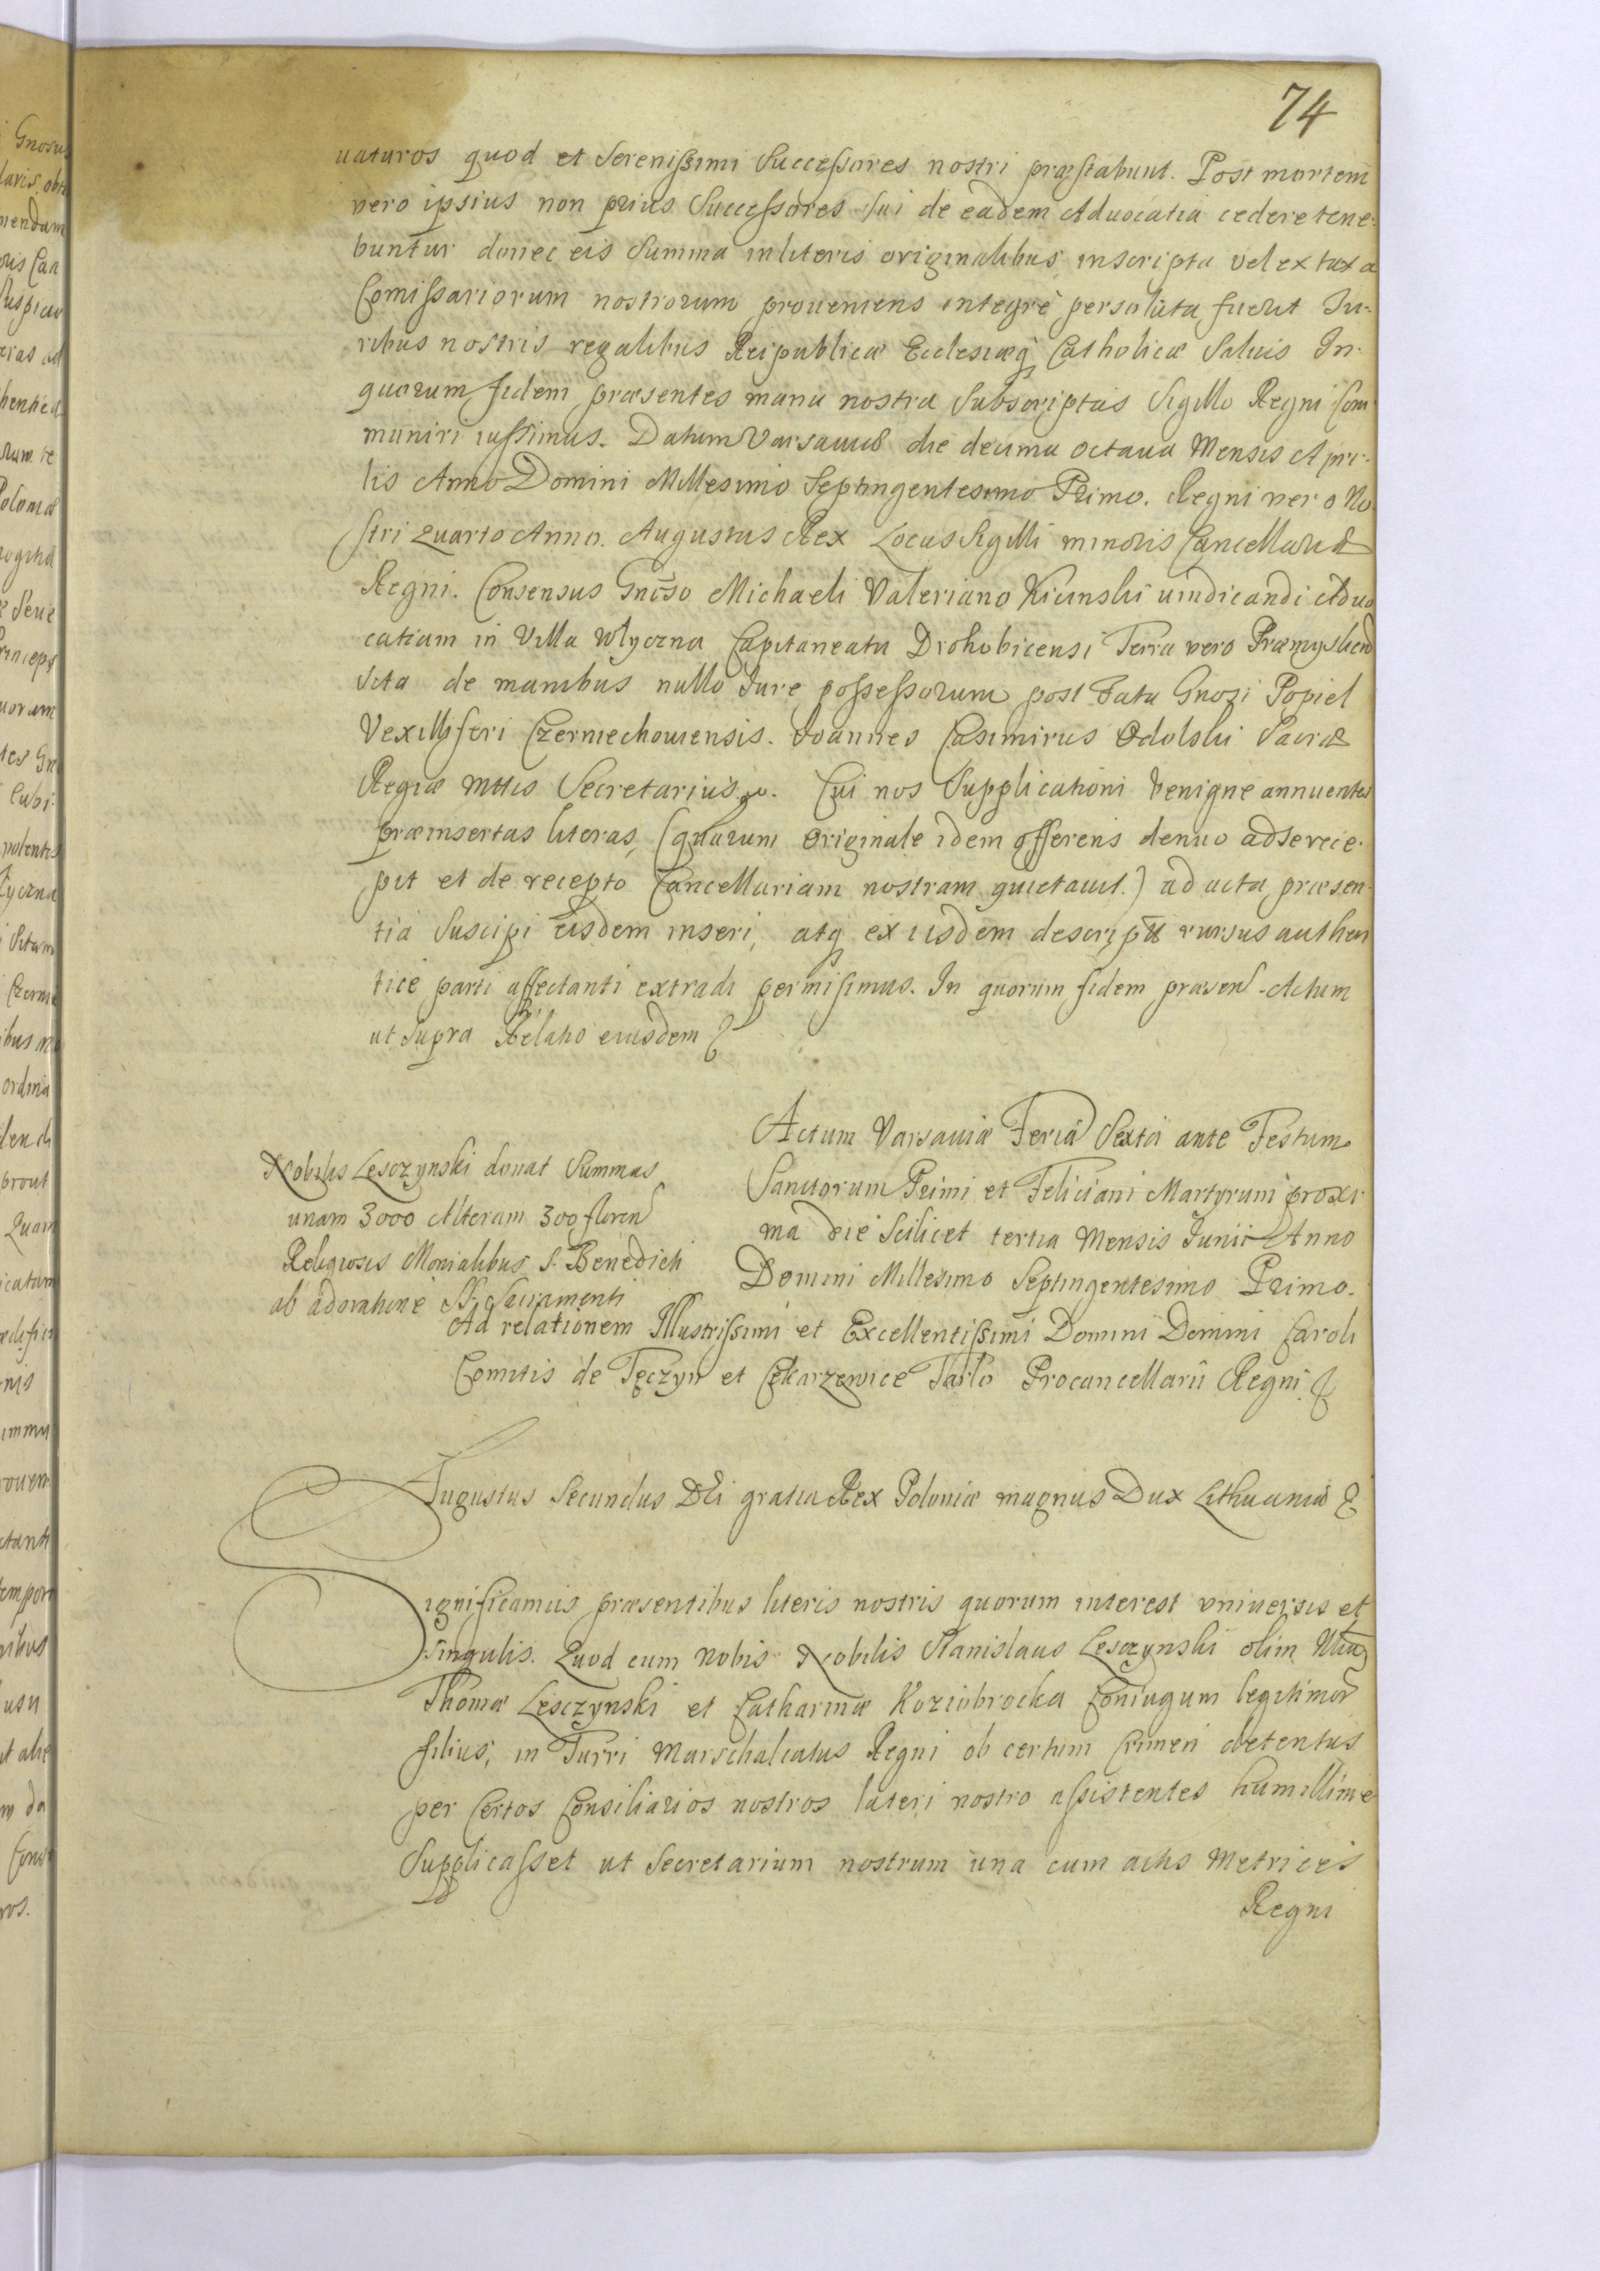 74
uaturos quod et Serenissimi Successores nostri præstabunt. Post mortem
vero ipsius non prius Successores sui de eadem Aduocatia cedere tene-
buntur donec eis Summa in literis originalibus inscripta vel ex taxa
Comissariorum nostrorum proueniens integrè persoluta fuerit Iu-
ribus nostris regalibus Reipublicæ Ecclesiæq Catholicæ Saluis In
quorum fidem præsentes manu nostra Subscriptas Sigillo Regni com
muniri iussimus. Datum Varsauiæ die decima octaua Mensis Apri-
lis Anno Domini Millesimo Septingentesimo Primo. Regni vero No
stri quarto Anno. Augustus Rex Locus Sigilli minoris Cancellariæ
Regni. Consensus Gnoso Michaeli Valeriano Kicinski uindicandi Aduo
catiam in Villa Wlyczna Capitaneatu Drohobicensi Terra vero Præmyslien
sita de manibus nullo Iure possessorum post Fata Gnosi Popiel
Vexilliferi Czerniechouiensis. Ioannes Casimirus Odolski Sacræ
Regiæ Mttis Secretarius. Cui nos Supplicationi benigne annuentes
præinsertas literas, (quarum Originale idem offerens denuo ad se rece-
pit et de recepto Cancellariam nostram quietauit.) ad acta præsen-
tia Suscipi eisdem inseri, atq ex iisdem descriptū rursus authen
ticè parti affectanti extradi permisimus. In quorum fidem præsen Actum
ut supra Relatio eiusdem
Actum Varsauiæ Feriâ Sextâ ante Festum
Sanctorum Primi et Feliciani Martyrum proxi-
ma die Scilicet tertia Mensis Junii Anno
Domini Millesimo Septingentesimo Primo.
Nobilis Lesczynski donat Summas
unam 3000 Alteram 300 floren
Religiosis Monialibus S. Benedicti
ab adoratione SS. Sacramenti
Ad relationem Illustrissimi et Excellentissimi Domini Domini Caroli
Comitis de Tęczyn et Czekarzewice Tarlo Procancellarii Regni
Augustus Secundus Dei gratia Rex Poloniæ magnus Dux Lithuaniæ
Significamus præsentibus literis nostris quorum interest vniuersis et
singulis. Quod cum nobis Nobilis Stanislaus Lesczynski olim
Thomæ Lesczynski et Catharinæ Koziobrocka Coniugum legitimor
filius, in Turri Marschalcatus Regni ob certum Crimen detentus
per Certos Consiliarios nostros lateri nostro assistentes humillime
Supplicasset ut Secretarium nostrum una cum actis Metrices
Regni